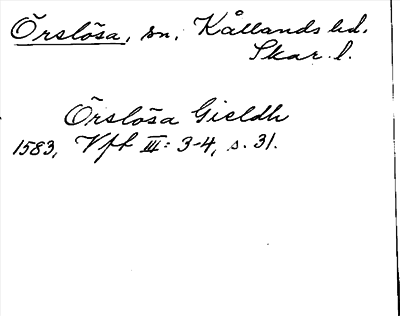 Örslösa, sn, Kållands hd.
Skar. l.
Örslösa Gieldh
1583, Vft III: 3-4, s. 31.